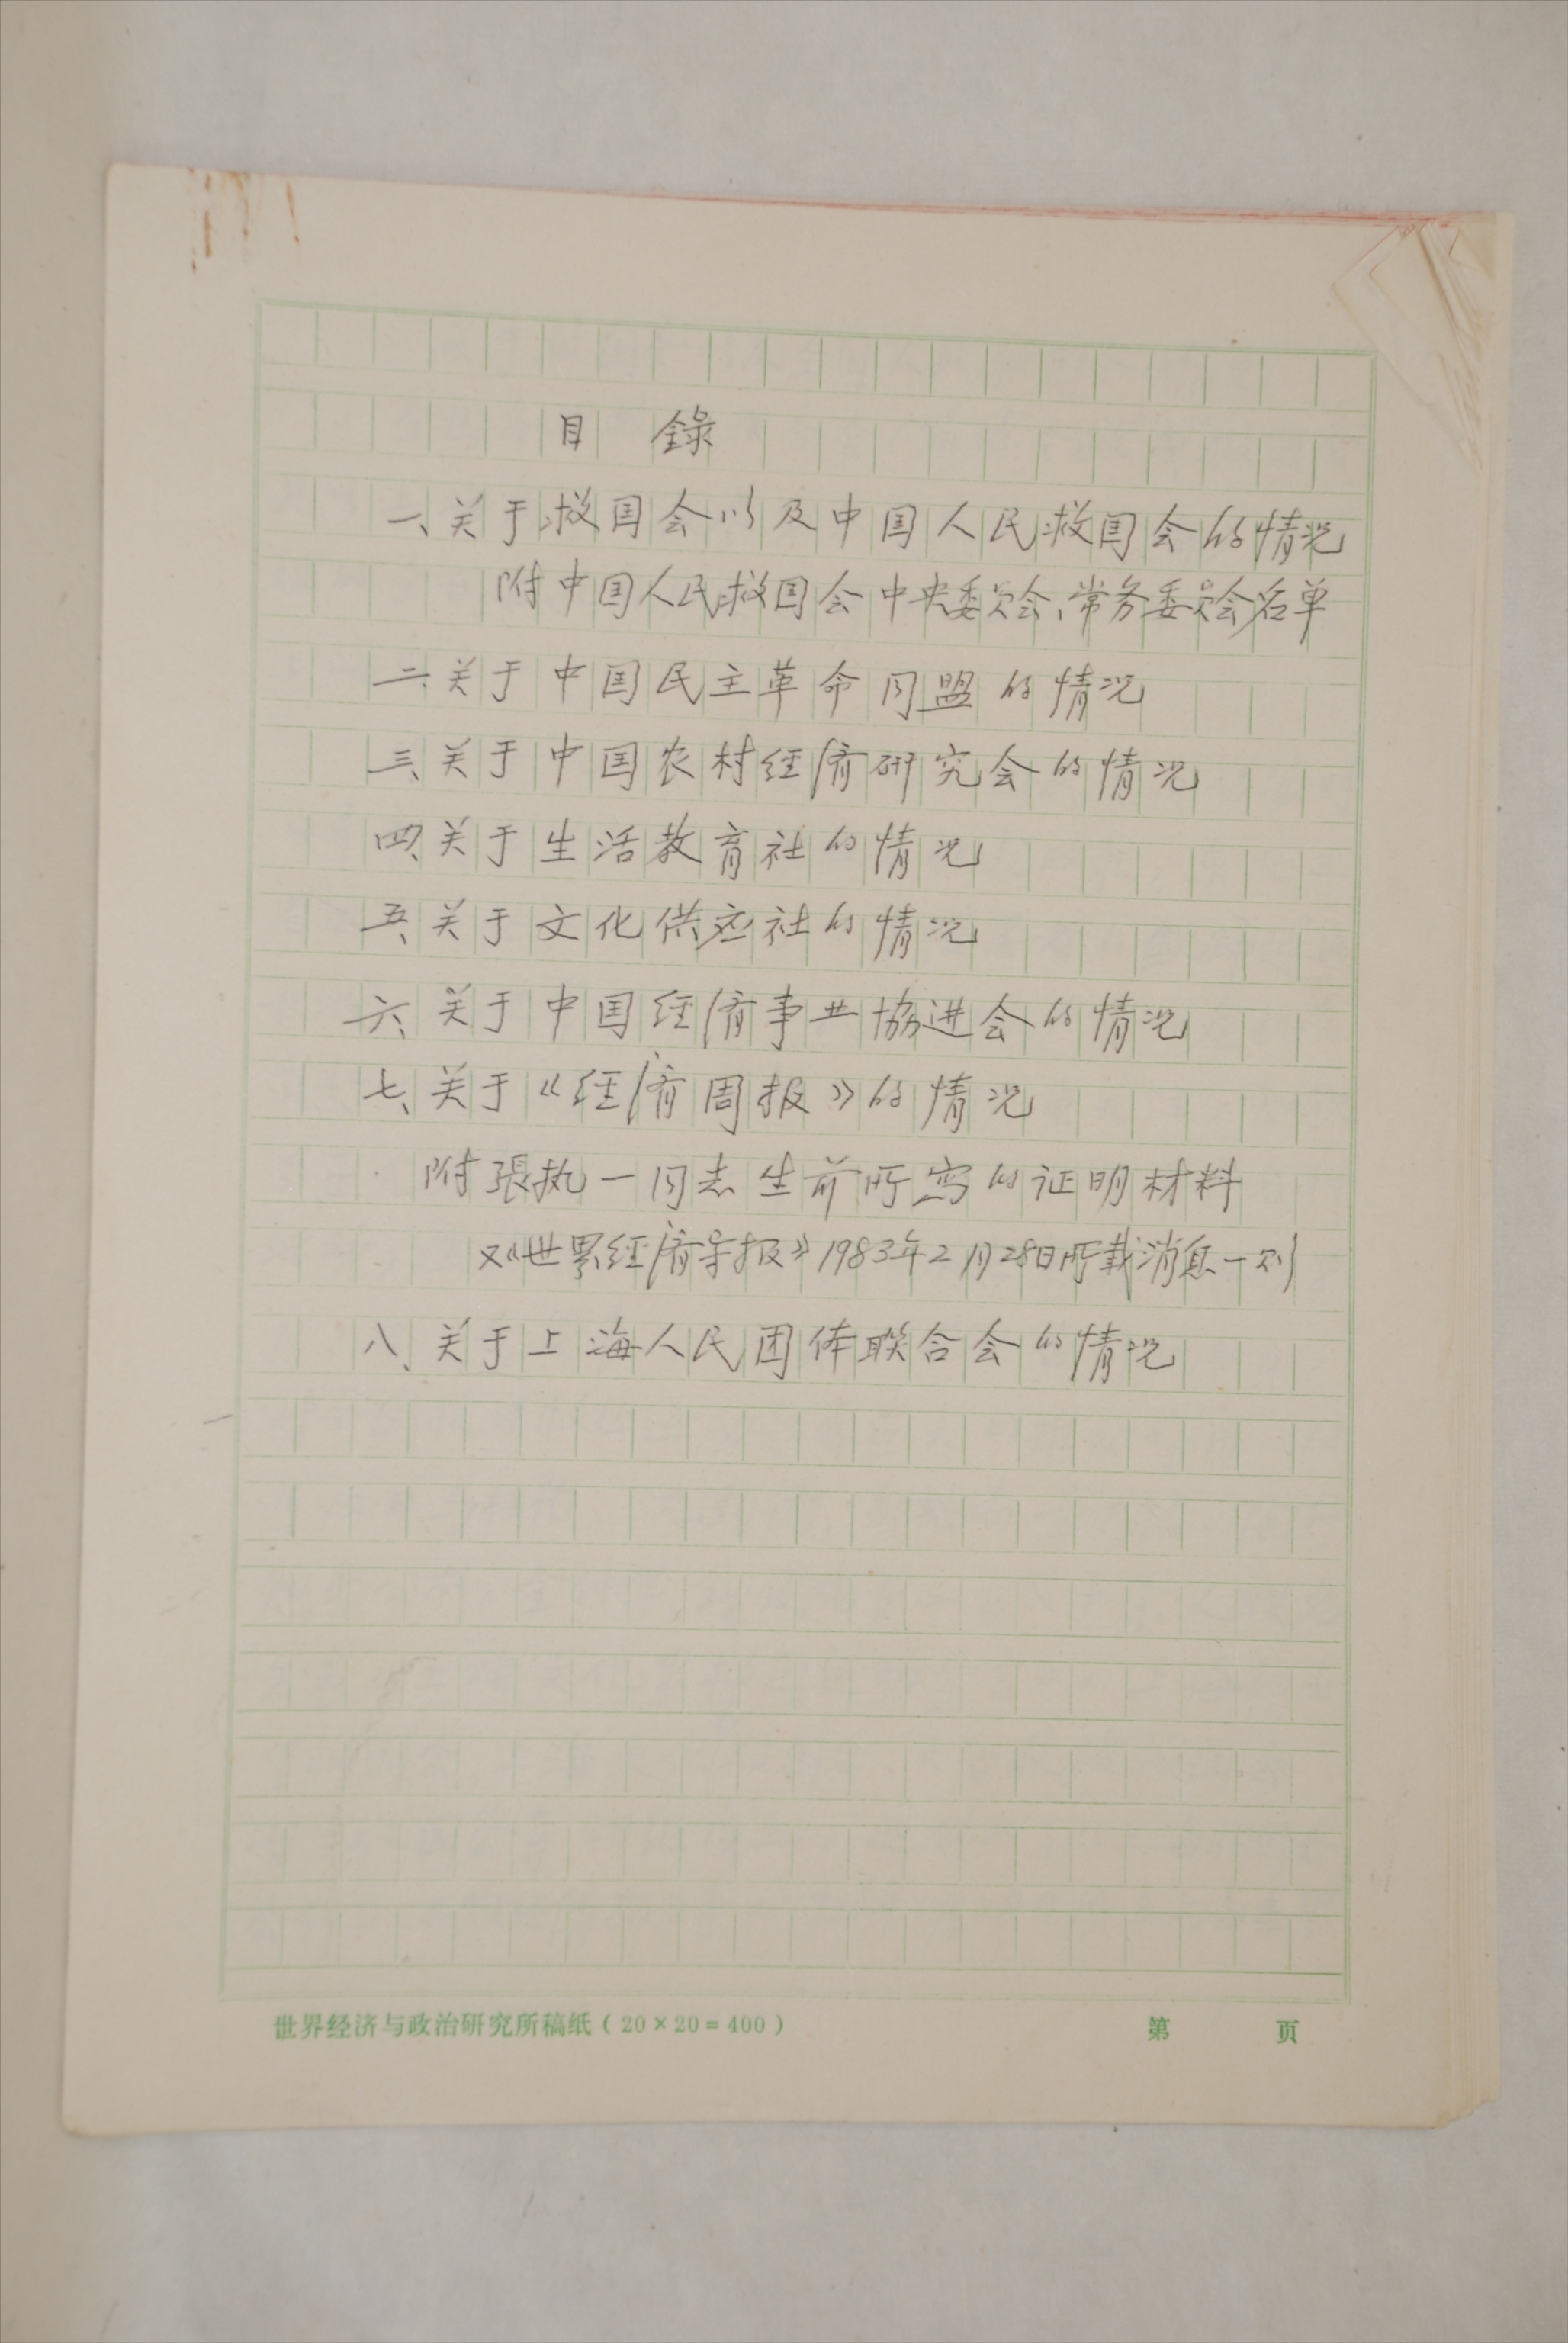 目 錄
一、关于救国会以及中国人民救国会的情况
附中国人民救国会中央委员会、常务委员会名单
二、关于中国民主革命同盟的情况
三、关于中国农村经济研究会的情况
四、关于生活教育社的情况
五、关于文化供应社的情况
六、关于中国经济事业协进会的情况
七、关于《经济周报》的情况
附張执一同志生前所写的证明材料
又《世界经济导报》1983年2月28日所载消息一则
八、关于上海人民团体联合会的情况
世界经济与政治研究所稿纸（20×20=400） 第 页